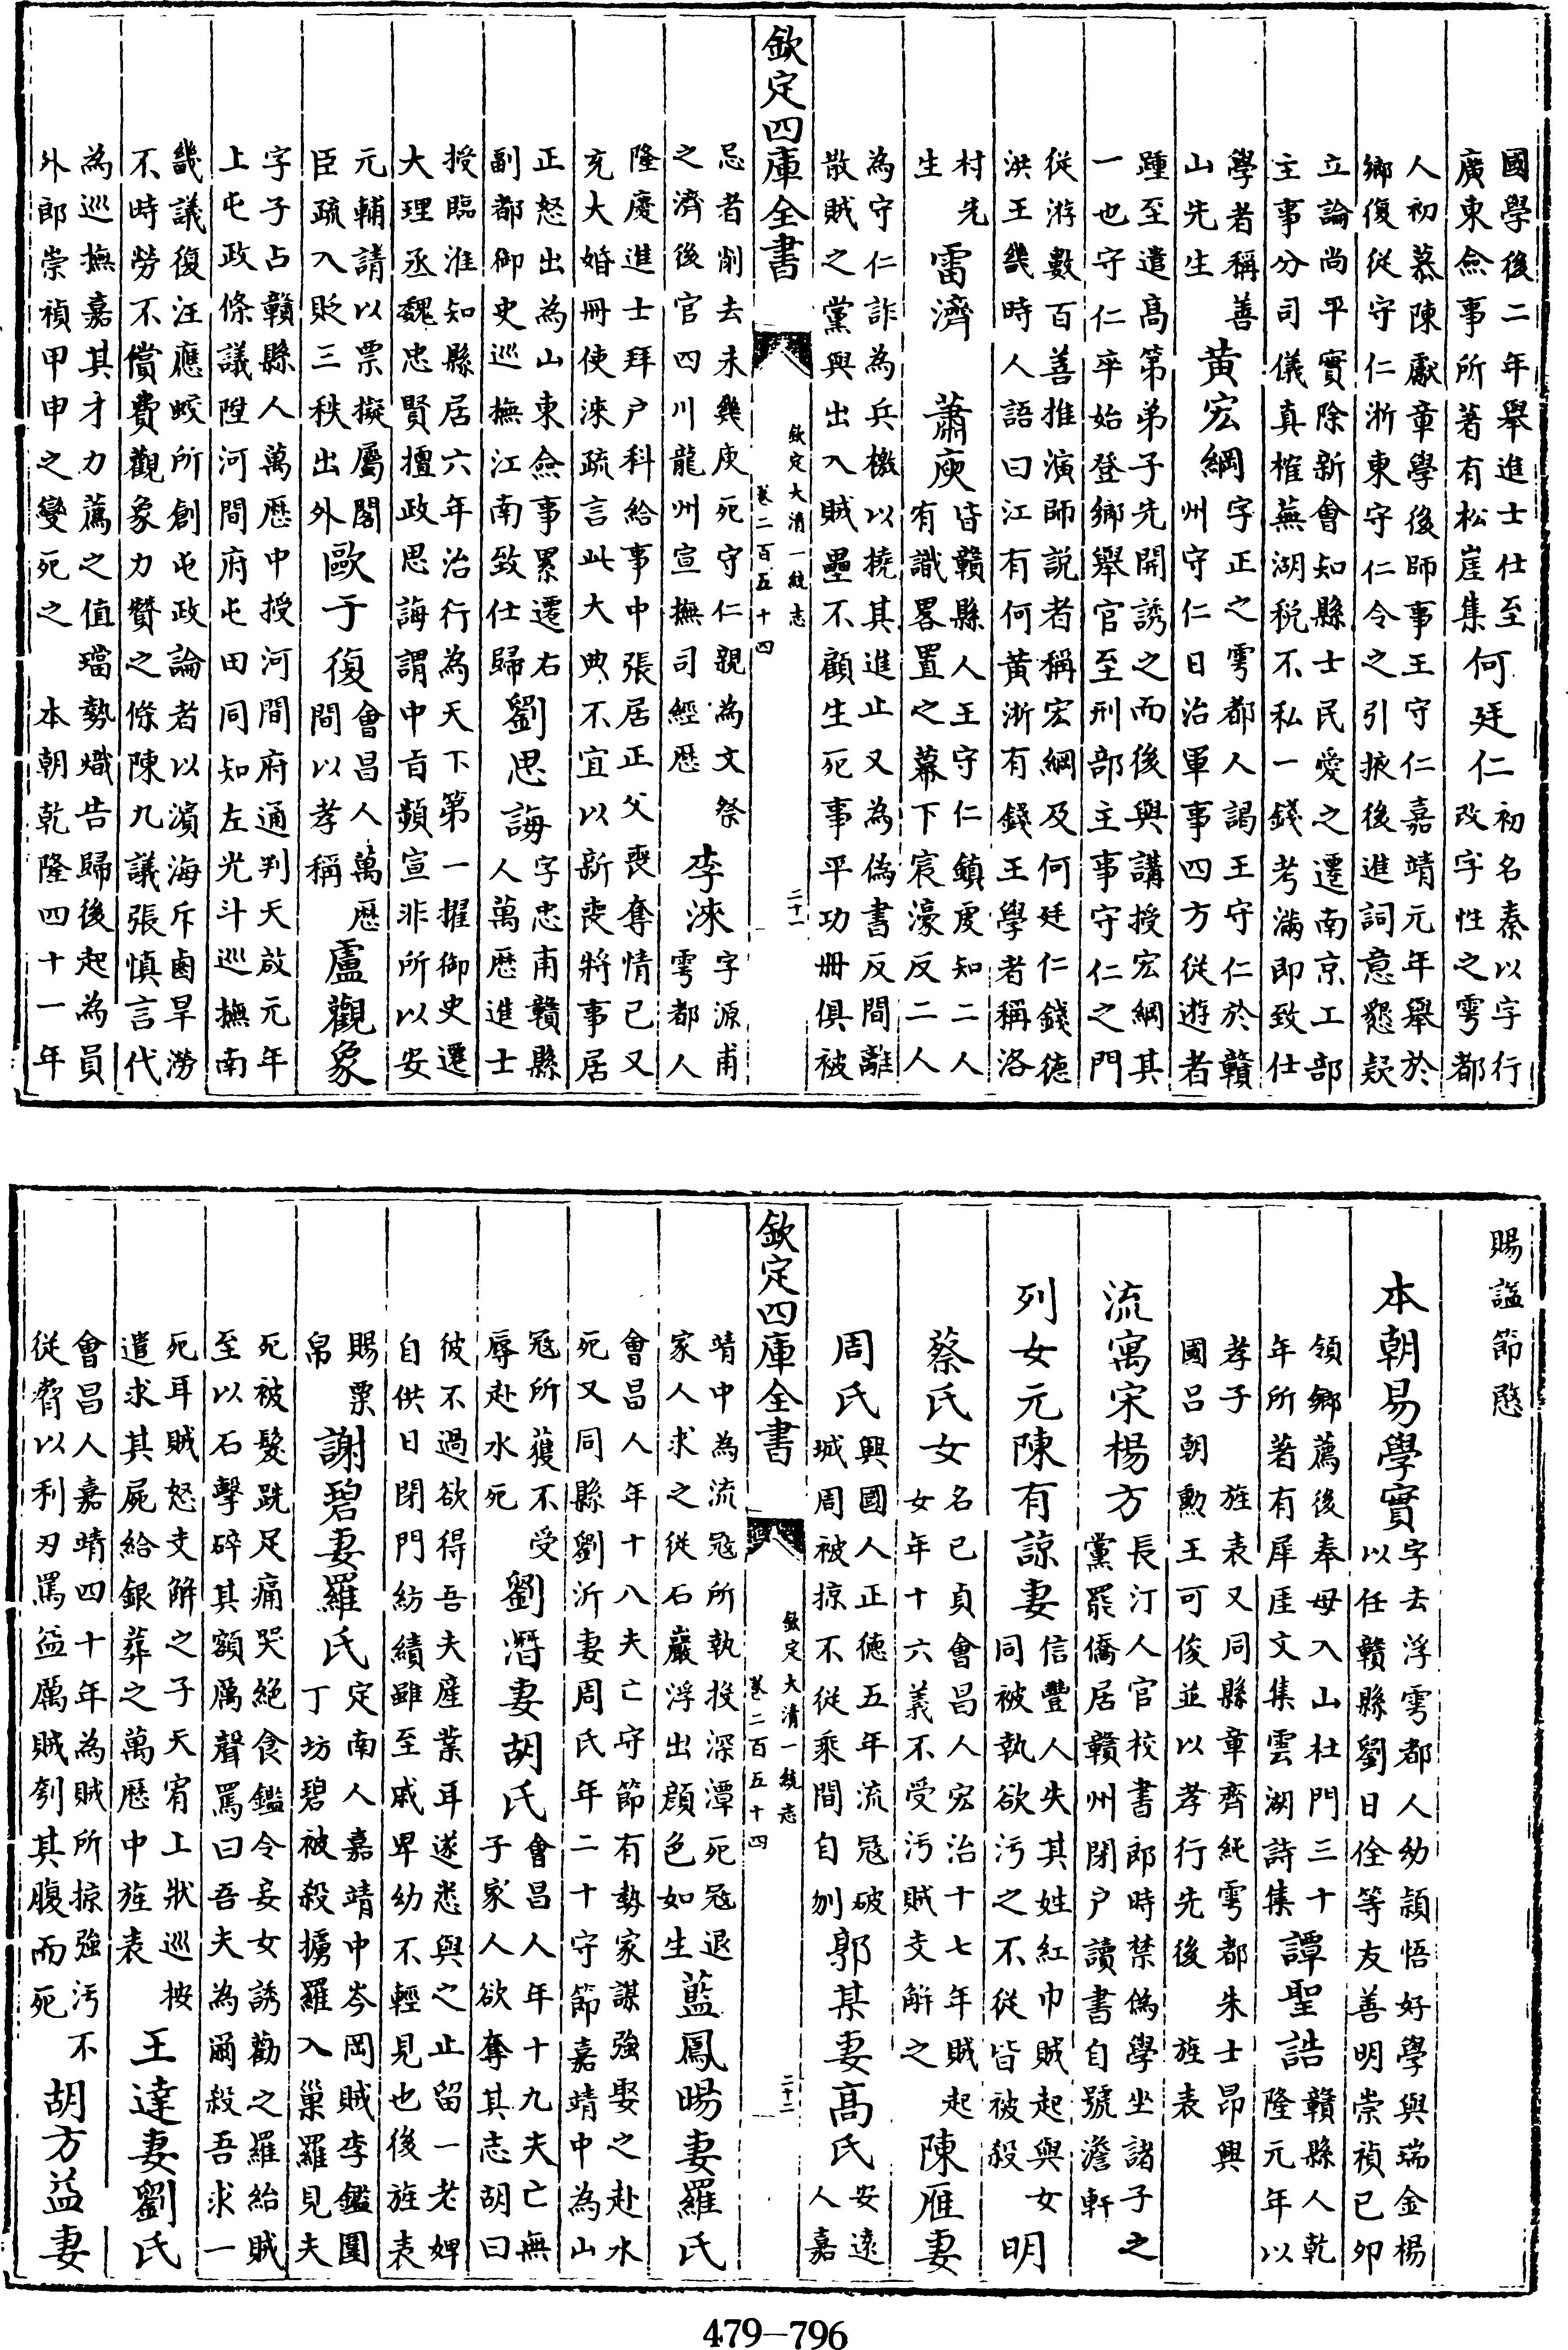 國學後二年舉進士仕至
廣東僉事所著有松崖集
何廷仁
初名秦以字行
改字性之雩都
人初慕陳獻章學後師事王守仁嘉靖元年舉於
鄉復從守仁浙東守仁令之引掖後進詞意懇款
立論尚平實除新會知縣士民愛之遷南京工部
主事分司儀真榷蕪湖稅不私一錢考滿即致仕
學者稱善
山先生
黃宏綱
字正之雩都人謁王守仁於贛
州守仁日治軍事四方從遊者
踵至遣高第弟子先開誘之而後與講授宏綱其
一也守仁卒始登鄉舉官至刑部主事守仁之門
從游數百善推演師説者稱宏綱及何廷仁錢德
洪王畿時人語曰江有何黃浙有錢王學者稱洛
村先
生
雷濟 蕭庾
皆贛縣人王守仁鎮虔知二人
有識畧置之幕下宸濠反二人
為守仁詐為兵檄以撓其進止又為偽書反間離
散賊之黨與出入賊壘不顧生死事平功冊俱被
欽定四庫全書
欽定大清一統志
卷二百五十四
二十一
忌者削去未幾庾死守仁親為文祭
之濟後官四川龍州宣撫司經歷
李淶
字源甫
雩都人
隆慶進士拜户科給事中張居正父喪奪情已又
充大婚冊使淶疏言此大典不宜以新喪將事居
正怒出為山東僉事累遷右
副都御史巡撫江南致仕歸
劉思誨
字忠甫贛縣
人萬歷進士
授臨淮知縣居六年治行為天下第一擢御史遷
大理丞魏忠賢擅政思誨謂中旨頻宣非所以安
元輔請以票擬屬閣
臣疏入貶三秩出外
歐于復
會昌人萬歷
間以孝稱
盧觀象
字子占贛縣人萬歷中授河間府通判天啟元年
上屯政條議陞河間府屯田同知左光斗巡撫南
畿議復汪應蛟所創屯政論者以濱海斥鹵旱澇
不時勞不償費觀象力贊之條陳九議張慎言代
為巡撫嘉其才力薦之值璫勢熾告歸後起為員
外郎崇禎甲申之變死之 本朝乾隆四十一年
賜諡節愍
本朝易學實
字去浮雩都人幼穎悟好學與瑞金楊
以任贛縣劉日佺等友善明崇禎己卯
領鄉薦後奉母入山杜門三十
年所著有犀厓文集雲湖詩集
譚聖誥
贛縣人乾
隆元年以
孝子 旌表又同縣章齊純雩都朱士昂興
國吕朝勳王可俊並以孝行先後 旌表
流寓宋楊方
長汀人官校書郎時禁偽學坐諸子之
黨罷僑居贛州閉户讀書自號澹軒
列女元陳有諒妻
信豐人失其姓紅巾賊起與女
同被執欲污之不從皆被殺
明
蔡氏女
名己貞會昌人宏治十七年賊起
女年十六義不受污賊支解之
陳雁妻
周氏
興國人正德五年流寇破
城周被掠不從乘間自刎
郭某妻高氏
安遠
人嘉
欽定四庫全書
欽定大清一統志
卷二百五十四
二十二
靖中為流寇所執投深潭死寇退
家人求之從石巖浮出顔色如生
藍鳳暘妻羅氏
會昌人年十八夫亡守節有勢家謀強娶之赴水
死又同縣劉沂妻周氏年二十守節嘉靖中為山
寇所獲不受
辱赴水死
劉潛妻胡氏
會昌人年十九夫亡無
子家人欲奪其志胡曰
彼不過欲得吾夫産業耳遂悉與之止留一老婢
自供日閉門紡績雖至戚卑幼不輕見也後旌表
賜粟
帛
謝碧妻羅氏
定南人嘉靖中岑岡賊李鑑圍
丁坊碧被殺擄羅入巢羅見夫
死被髮跣足痛哭絶食鑑令妾女誘勸之羅紿賊
至以石擊碎其額厲聲罵曰吾夫為爾殺吾求一
死耳賊怒支解之子天宥上狀巡按
遣求其屍給銀葬之萬歷中旌表
王達妻劉氏
會昌人嘉靖四十年為賊所掠強污不
從脅以利刃罵益厲賊刳其腹而死
胡方益妻
479-796